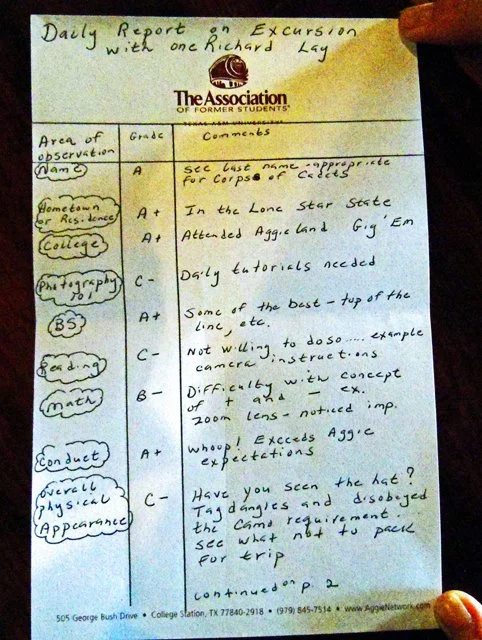 Daily Report on Excursion
with one Richard Lay
The Association
OF FORMER STUDENTS
TEXAS A&M UNIVERSITY
Area of observation Grade Comments
Name A See last name - appropriate
for Corps of Cadets
Hometown or Residence A+ In the Lone Star State
College A+ Attended Aggieland Gig 'Em
Photography 101 C- Daily tutorials needed
BS A+ Some of the best - top of the
line, etc.
Reading C- Not willing to do so .... example
camera instructions
Math B- Difficulty with concept
of + and - ex.
zoom lens - noticed imp.
Conduct A+ Whoop! Exceeds Aggie
expectations
Overall physical Appearance C- Have you seen the hat?
Tag dangles and disobeyed
the Camo requirement.
See what not to pack
for trip
continued on p. 2
505 George Bush Drive • College Station, TX 77840-2918 • (979) 845-7514 • www.AggieNetwork.com